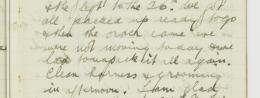 the Sept to the 26th. We got
all packed up ready to go
when the orderly came we
were not moving today and
had to unpack it all again.
Clean harness & grooming
in afternoon. I am glad